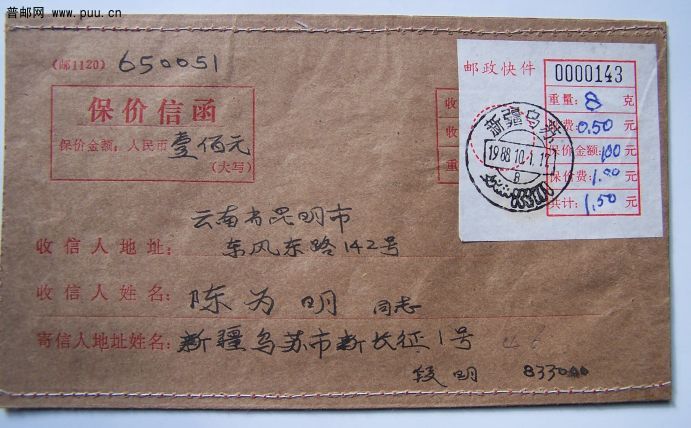 普邮网 www.puu.cn
(邮1120) 650051
保价信函
保价金额：人民币 壹佰元
(大写)
邮政快件
0000143
重量：8 克
费：0.50 元
保价金额：100 元
保价费：1.00 元
共计：1.50 元
新疆乌苏
1988.10.1.17
收
收
重
云南省昆明市
收信人地址：东风东路142号
收信人姓名：陈为明 同志
寄信人地址姓名：新疆乌苏市新长征1号
段明 833000